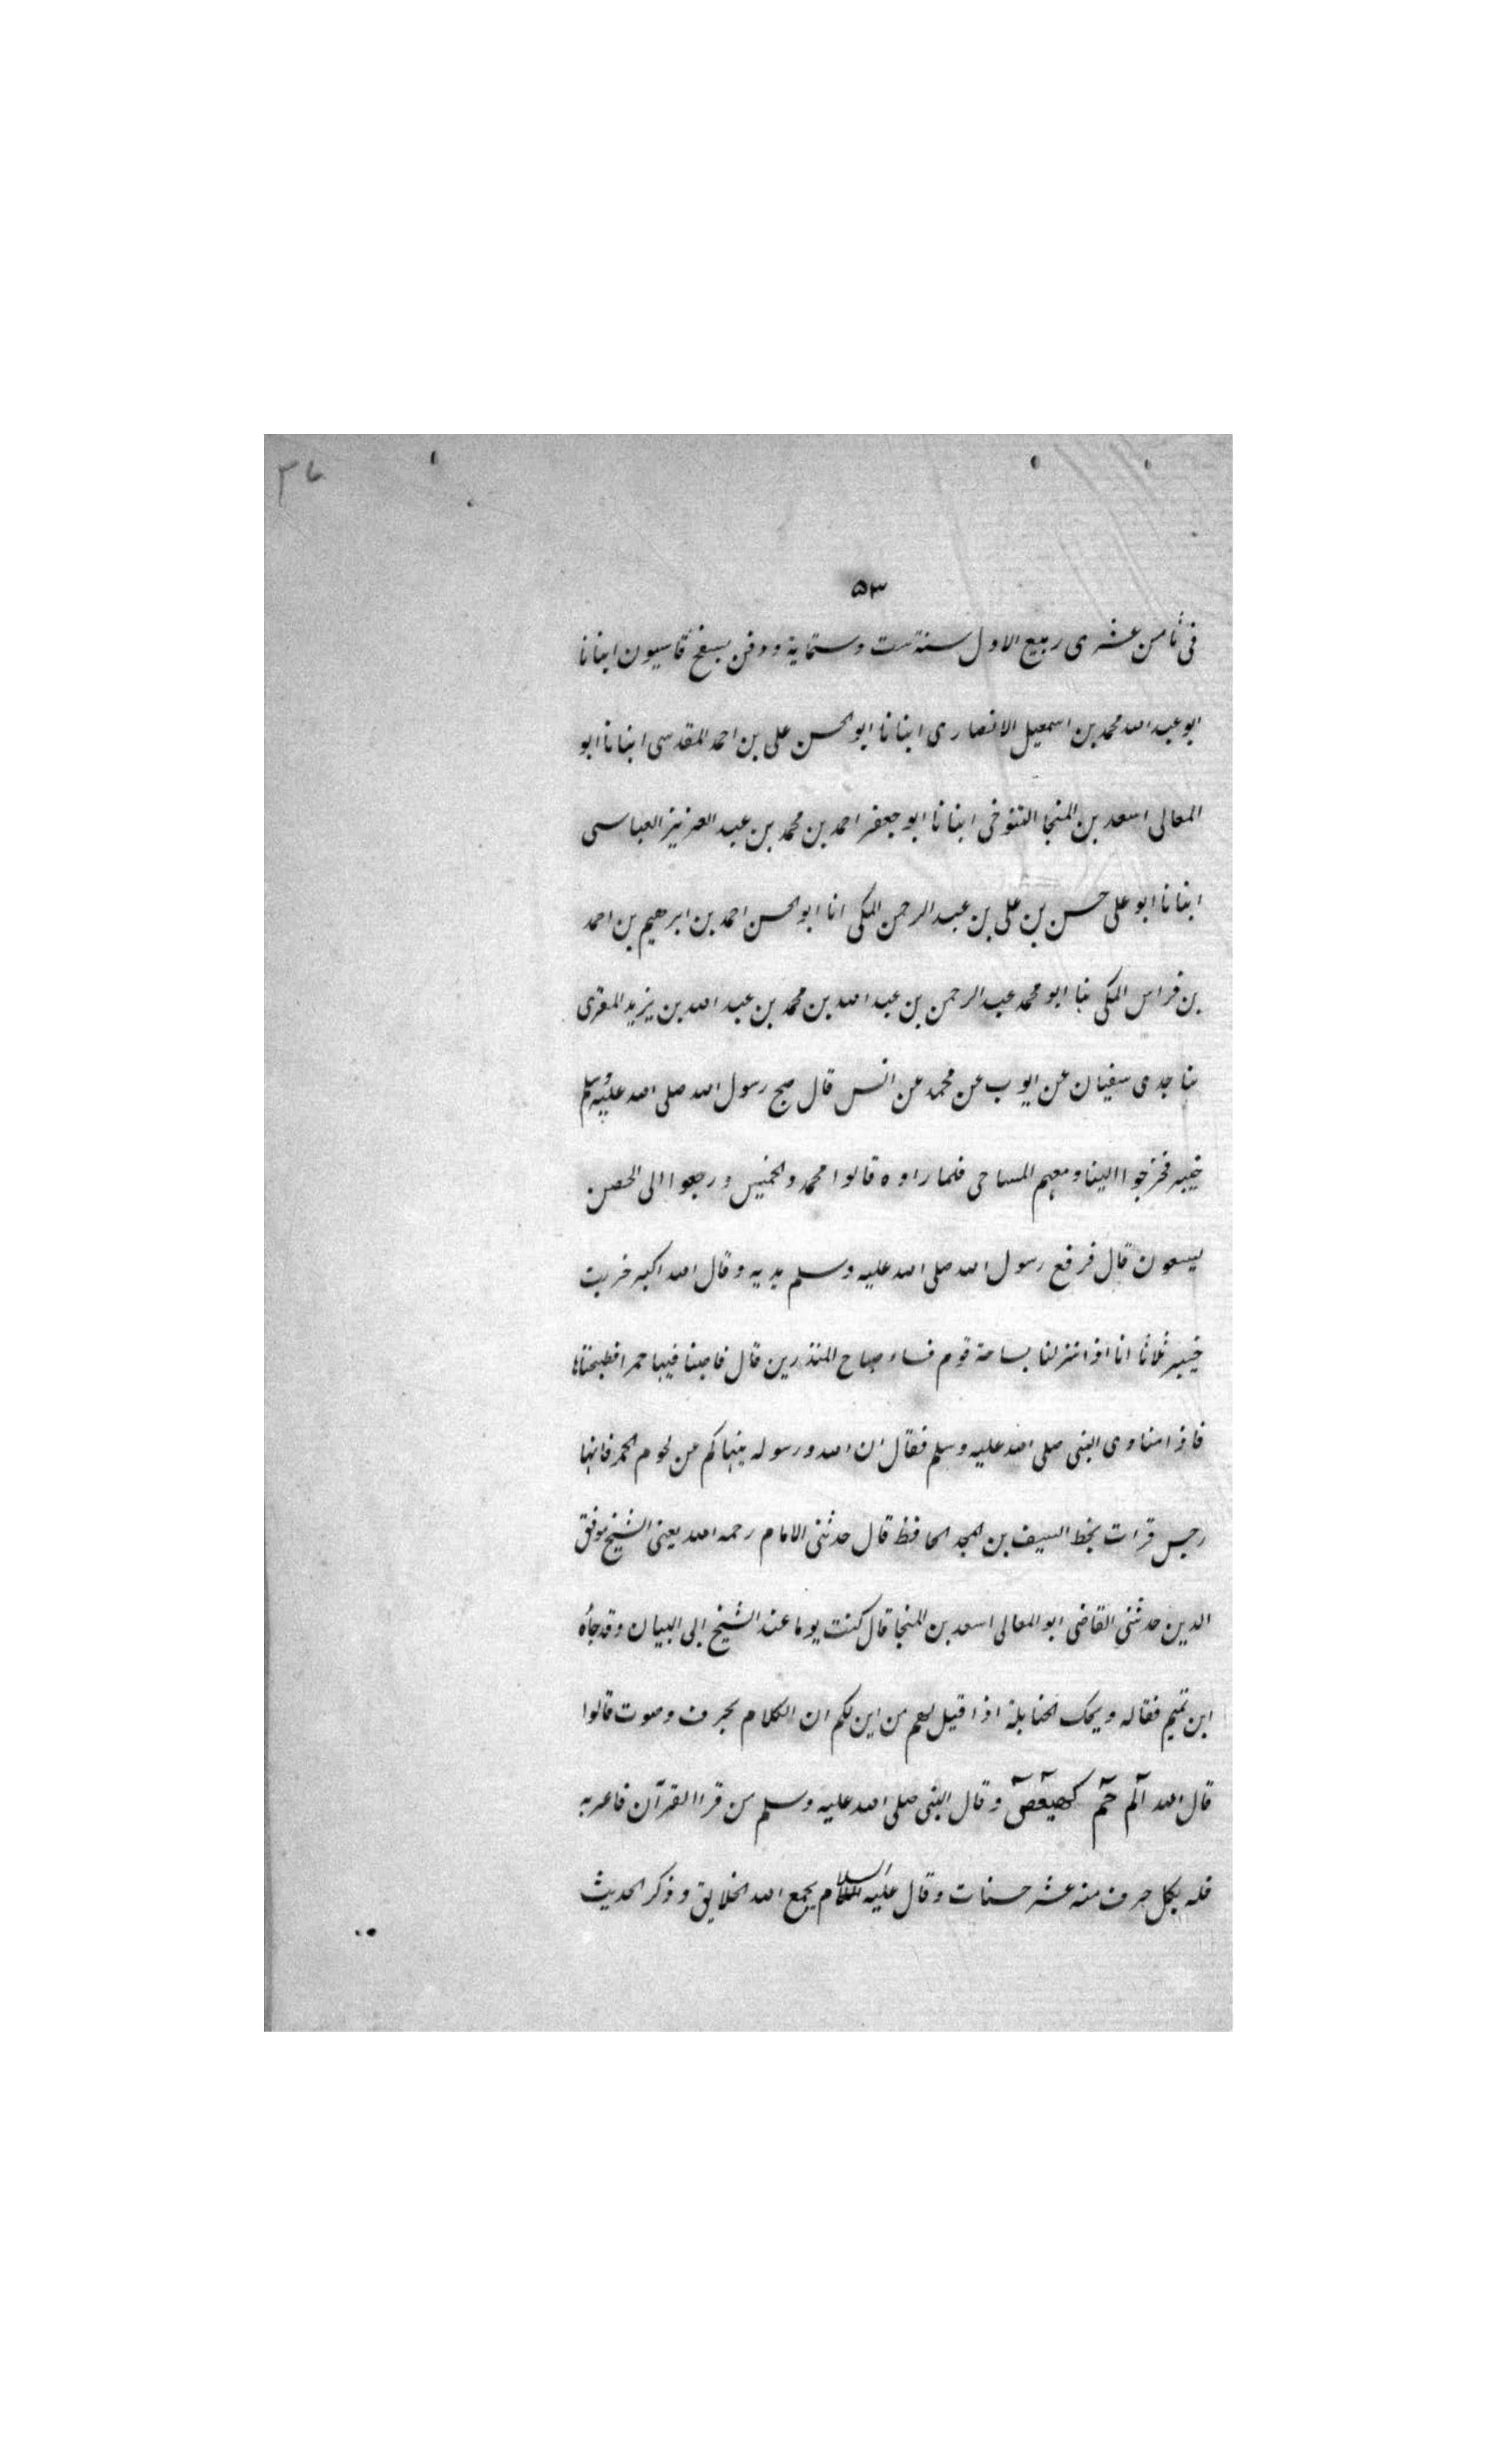 ٢٧
٥٣
فى ثامن عشرى ربيع الاول سنة ست وستماية ودفن بسفح قاسيون انبانا
ابو عبد الله محمد بن اسمعيل الانصارى انبانا ابو الحسن على بن احمد المقدسى انبانا ابو
المعالى اسعد بن المنجا التنوخى انبانا ابو جعفر احمد بن محمد بن عبد العزيز العباسى
انبانا ابو على حسن بن على بن عبد الرحمن المكى انا ابو الحسن احمد بن ابرهيم بن احمد
بن فراس المكى ثنا ابو محمد عبد الرحمن بن عبد الله بن محمد بن عبد الله بن يزيد المقرى
ثنا جدى سفيان عن ايوب عن محمد عن انس قال صبح رسول الله صلى الله عليه وسلم
خيبر فخرجوا الينا ومعهم المساحى فلما راوه قالوا محمد والخميس ورجعوا الى الحصن
يسعون قال فرفع رسول الله صلى الله عليه وسلم يديه وقال الله اكبر خربت
خيبر ثلاثا انا اذا نزلنا بساحة قوم فساء صباح المنذرين قال فاصبنا فيها حمرا فطبخناها
فاذا مناوى النبى صلى الله عليه وسلم فقال ان الله ورسوله ينهاكم عن لحوم الحمر فانها
رجس قرات بخط السيف بن المجد الحافظ قال حدثنى الامام رحمه الله يعنى الشيخ موفق
الدين حدثنى القاضى ابو المعالى اسعد بن المنجا قال كنت يوما عند الشيخ ابى البيان وقد جاُه
ابن تميم فقاله ويحك الحنابلة اذا قيل لهم من اين لكم ان الكلام بحرف وصوت قالوا
قال الله آلم حٓم كهيعٓصٓ وقال النبى صلى الله عليه وسلم من قرا القرآن فاعربه
فله بكل حرف منه عشر حسنات وقال عليه السلام يجمع الله الخلايق وذكر الحديث